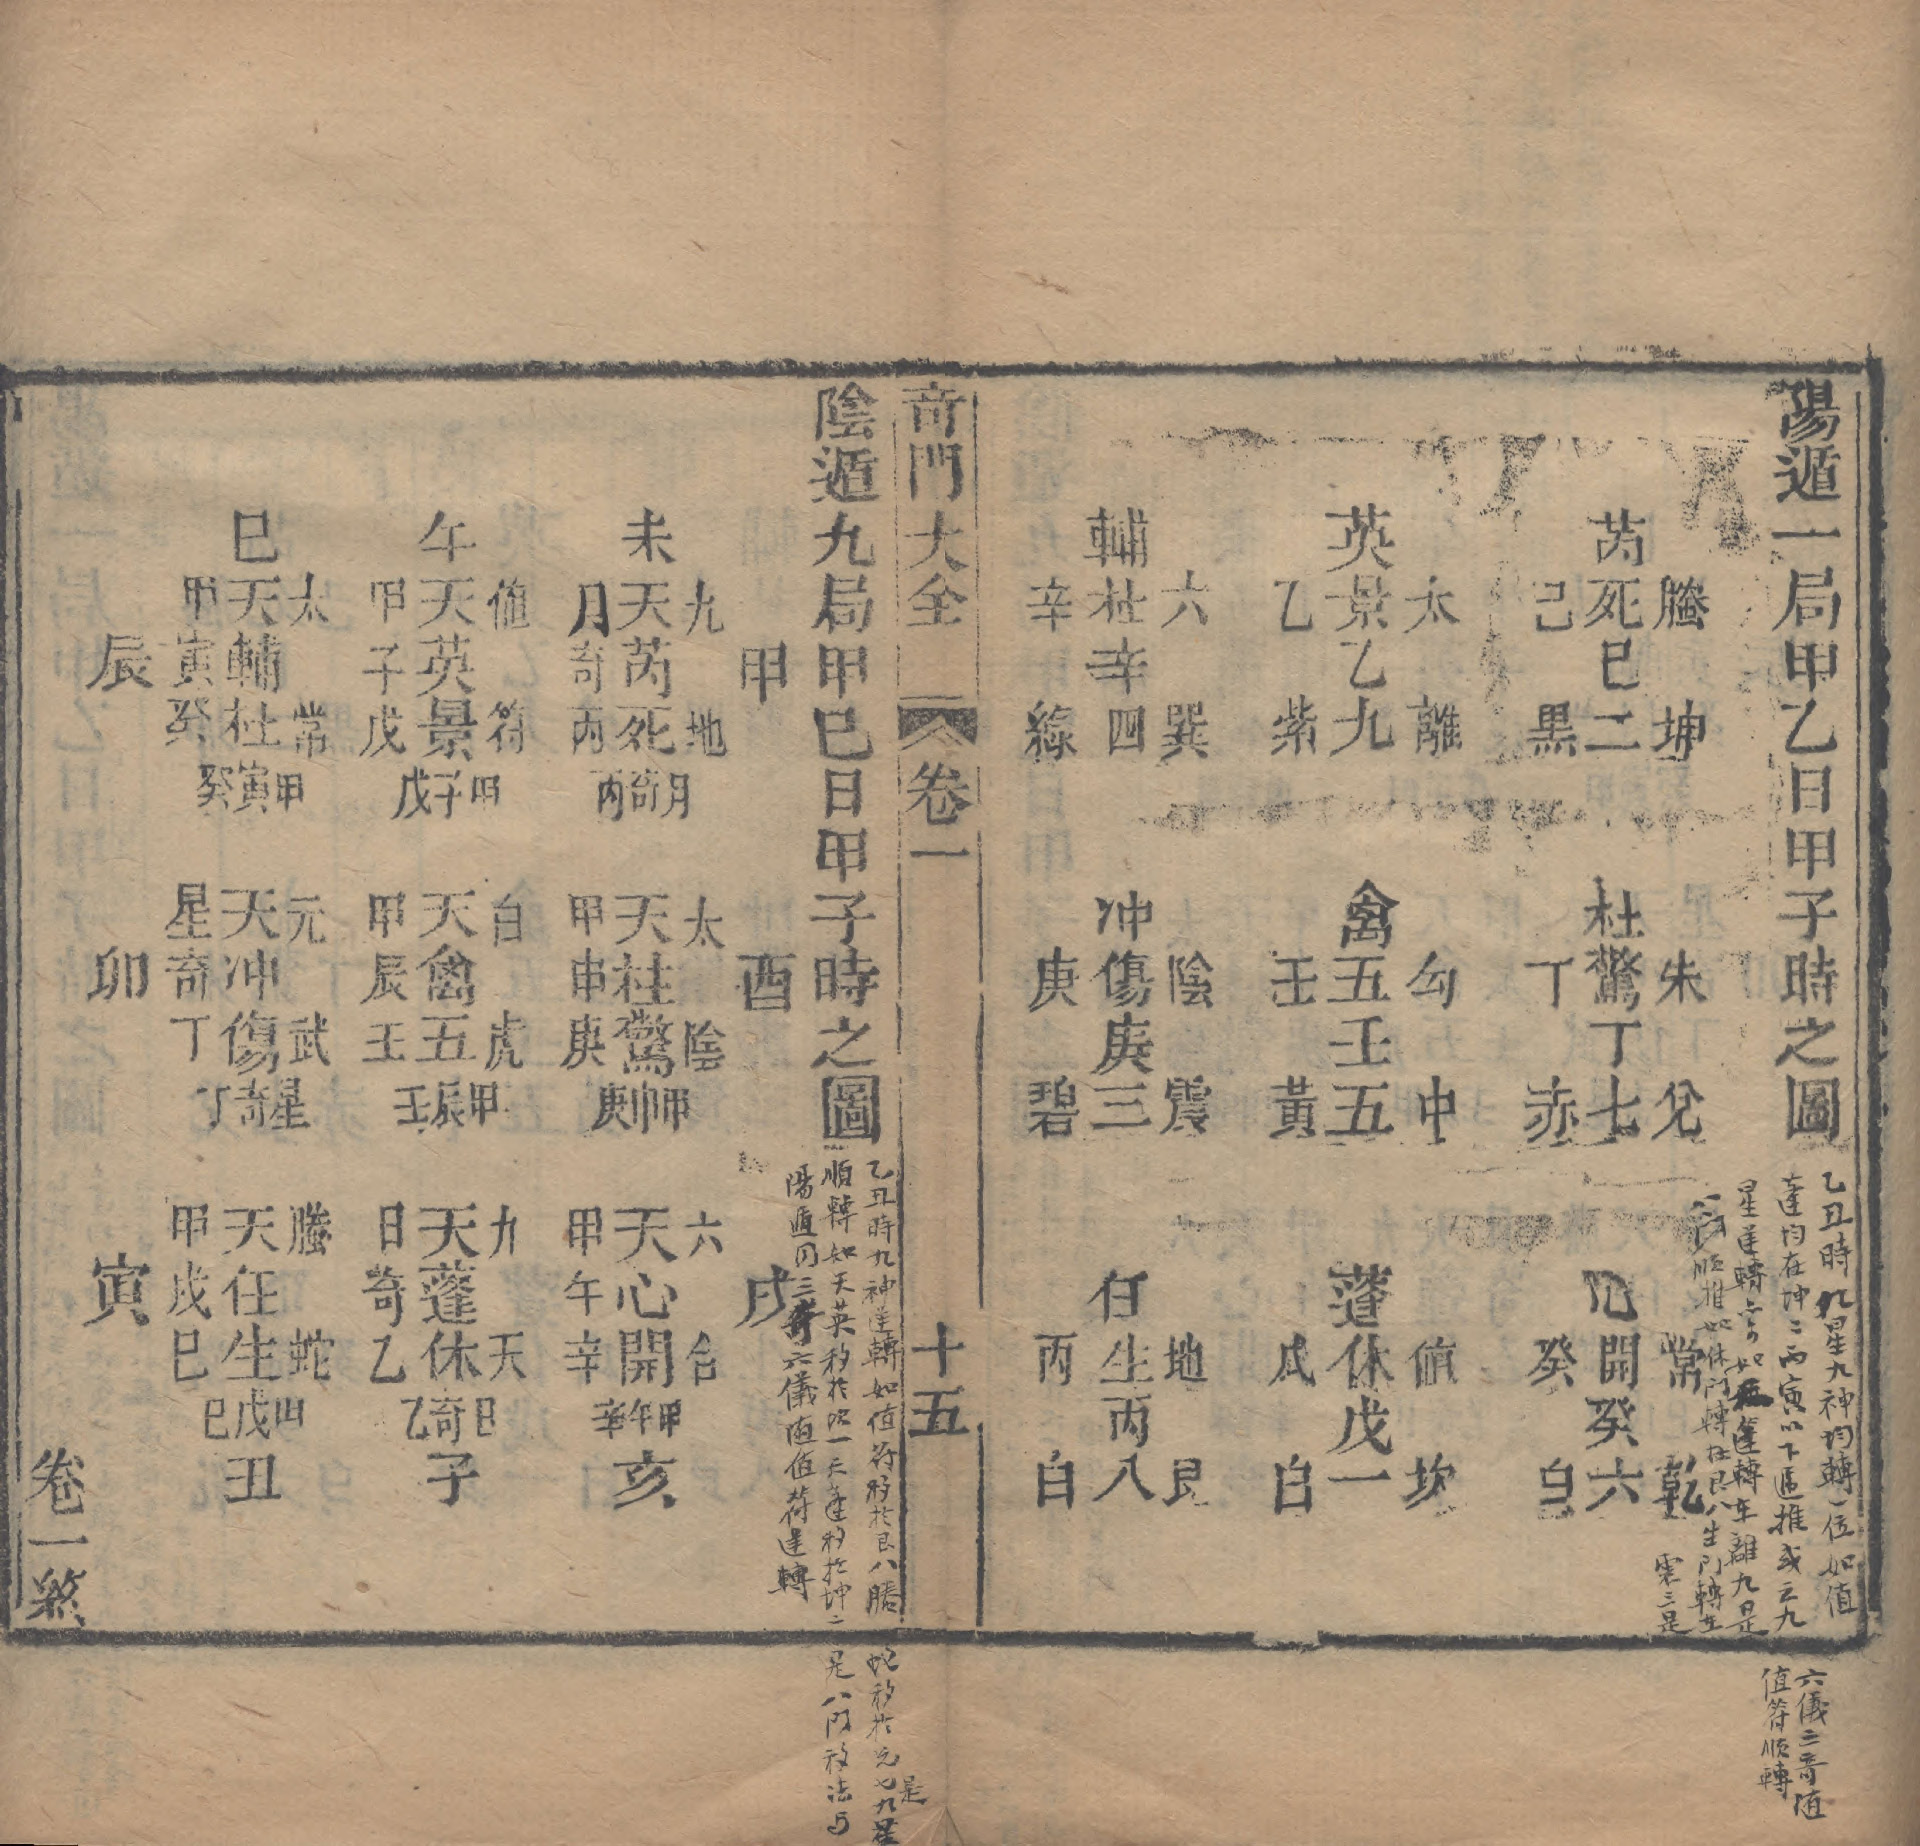 陽遁一局甲乙日甲子時之圖
乙丑時九星九神均轉一位如值
六儀三奇随
值符順轉
芮
螣死己
巳
坤二黒
英
太景乙
乙
離九紫
輔
六杜辛
辛
巽四綠
柱
朱驚丁
丁
兌七赤
禽
勾五壬
壬
中五黃
冲
陰傷庚
庚
震三碧
常開癸
癸
乾六白
蓬
值休戊
戊
坎一白
任
地生丙
丙
艮八白
奇門大全 卷一 十五
陰遁九局甲己日甲子時之圖
乙丑時九神逆轉如值符移於艮八螣
蛇移於兌七九星
是
順轉如天英移於坎一天蓬移於坤二
是八門移法与
陽遁同三奇六儀随值符逆轉
甲
酉
戌
未
九天月
芮奇
地死丙
月奇丙
太天甲
柱申
陰驚庚
甲申庚
六天甲
心午
合開辛
甲午辛
亥
午
值天甲
英子
符景戊
甲子戊
白天甲
禽辰
虎五壬
甲辰壬
九天日
蓬奇
天休乙
日奇乙
子
巳
太天甲
輔寅
常杜癸
甲寅癸
元天星
冲奇
武傷丁
星奇丁
螣天甲
任戌
蛇生巳
甲戌巳
丑
辰
卯
寅
卷一煞